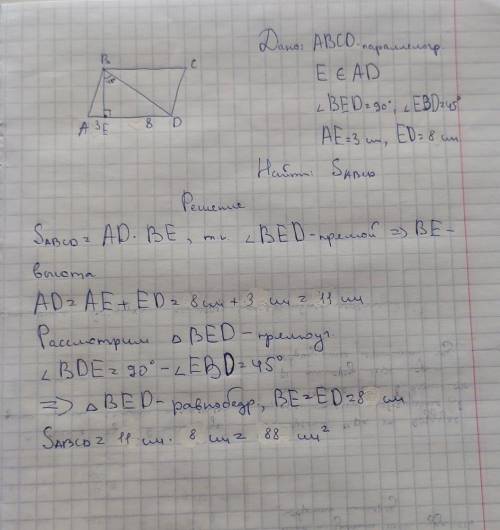 Дано: ABCD-параллелогр.
E ∈ AD
∠BED=90°, ∠EBD=45°
AE=3 см, ED=8 см
Найти: SABCD
B C
45°
A 3 E 8 D
Решение
SABCD= AD · BE, т.к. ∠BED-прямой => BE-
высота
AD= AE + ED= 8 см + 3 см = 11 см
Рассмотрим △BED-прямоуг.
∠BDE= 90° - ∠EBD= 45°
=> △BED-равнобедр, BE=ED=8 см
SABCD= 11 см · 8 см= 88 см²